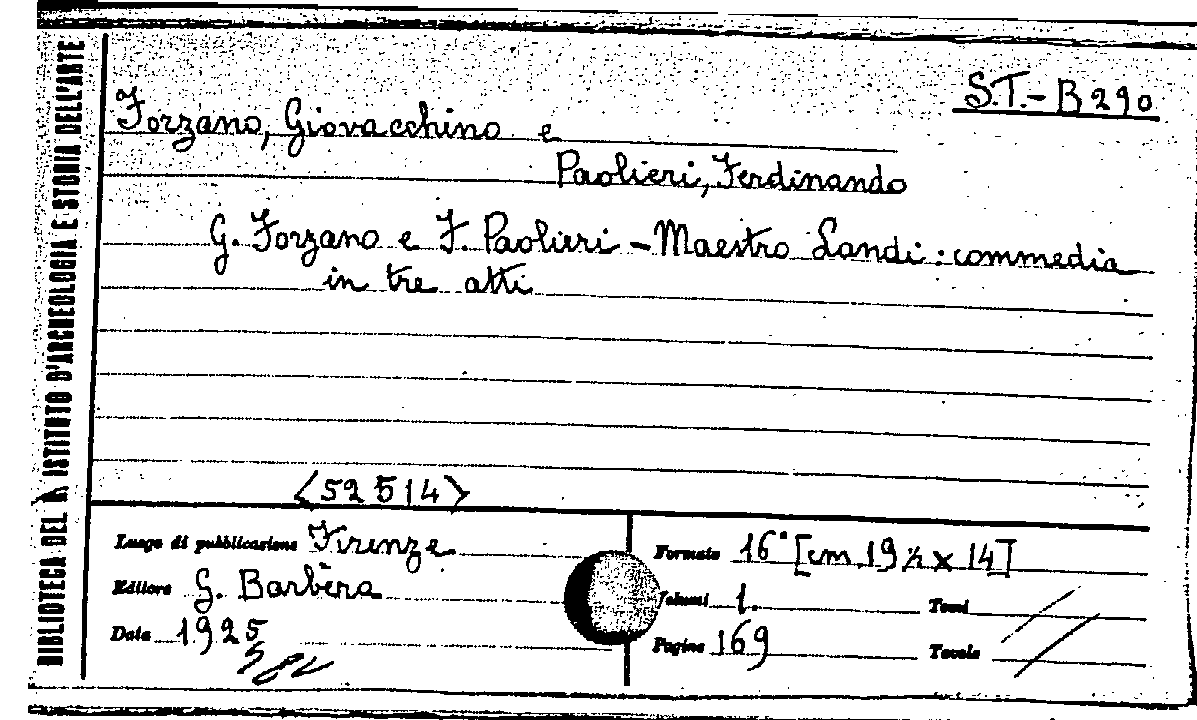 BIBLIOTECA DEL R. ISTITUTO D'ARCHEOLOGIA E STORIA DELL'ARTE
S.T.-B 290
Forzano, Giovacchino e
Paolieri, Ferdinando
G. Forzano e F. Paolieri - Maestro Landi: commedia
in tre atti
<52514>
Luogo di pubblicazione Firenze
Editore G. Barbèra
Data 1925
Formato 16° [cm. 19 ½ x 14]
Volumi 1.
Tomi
Pagine 169
Tavole